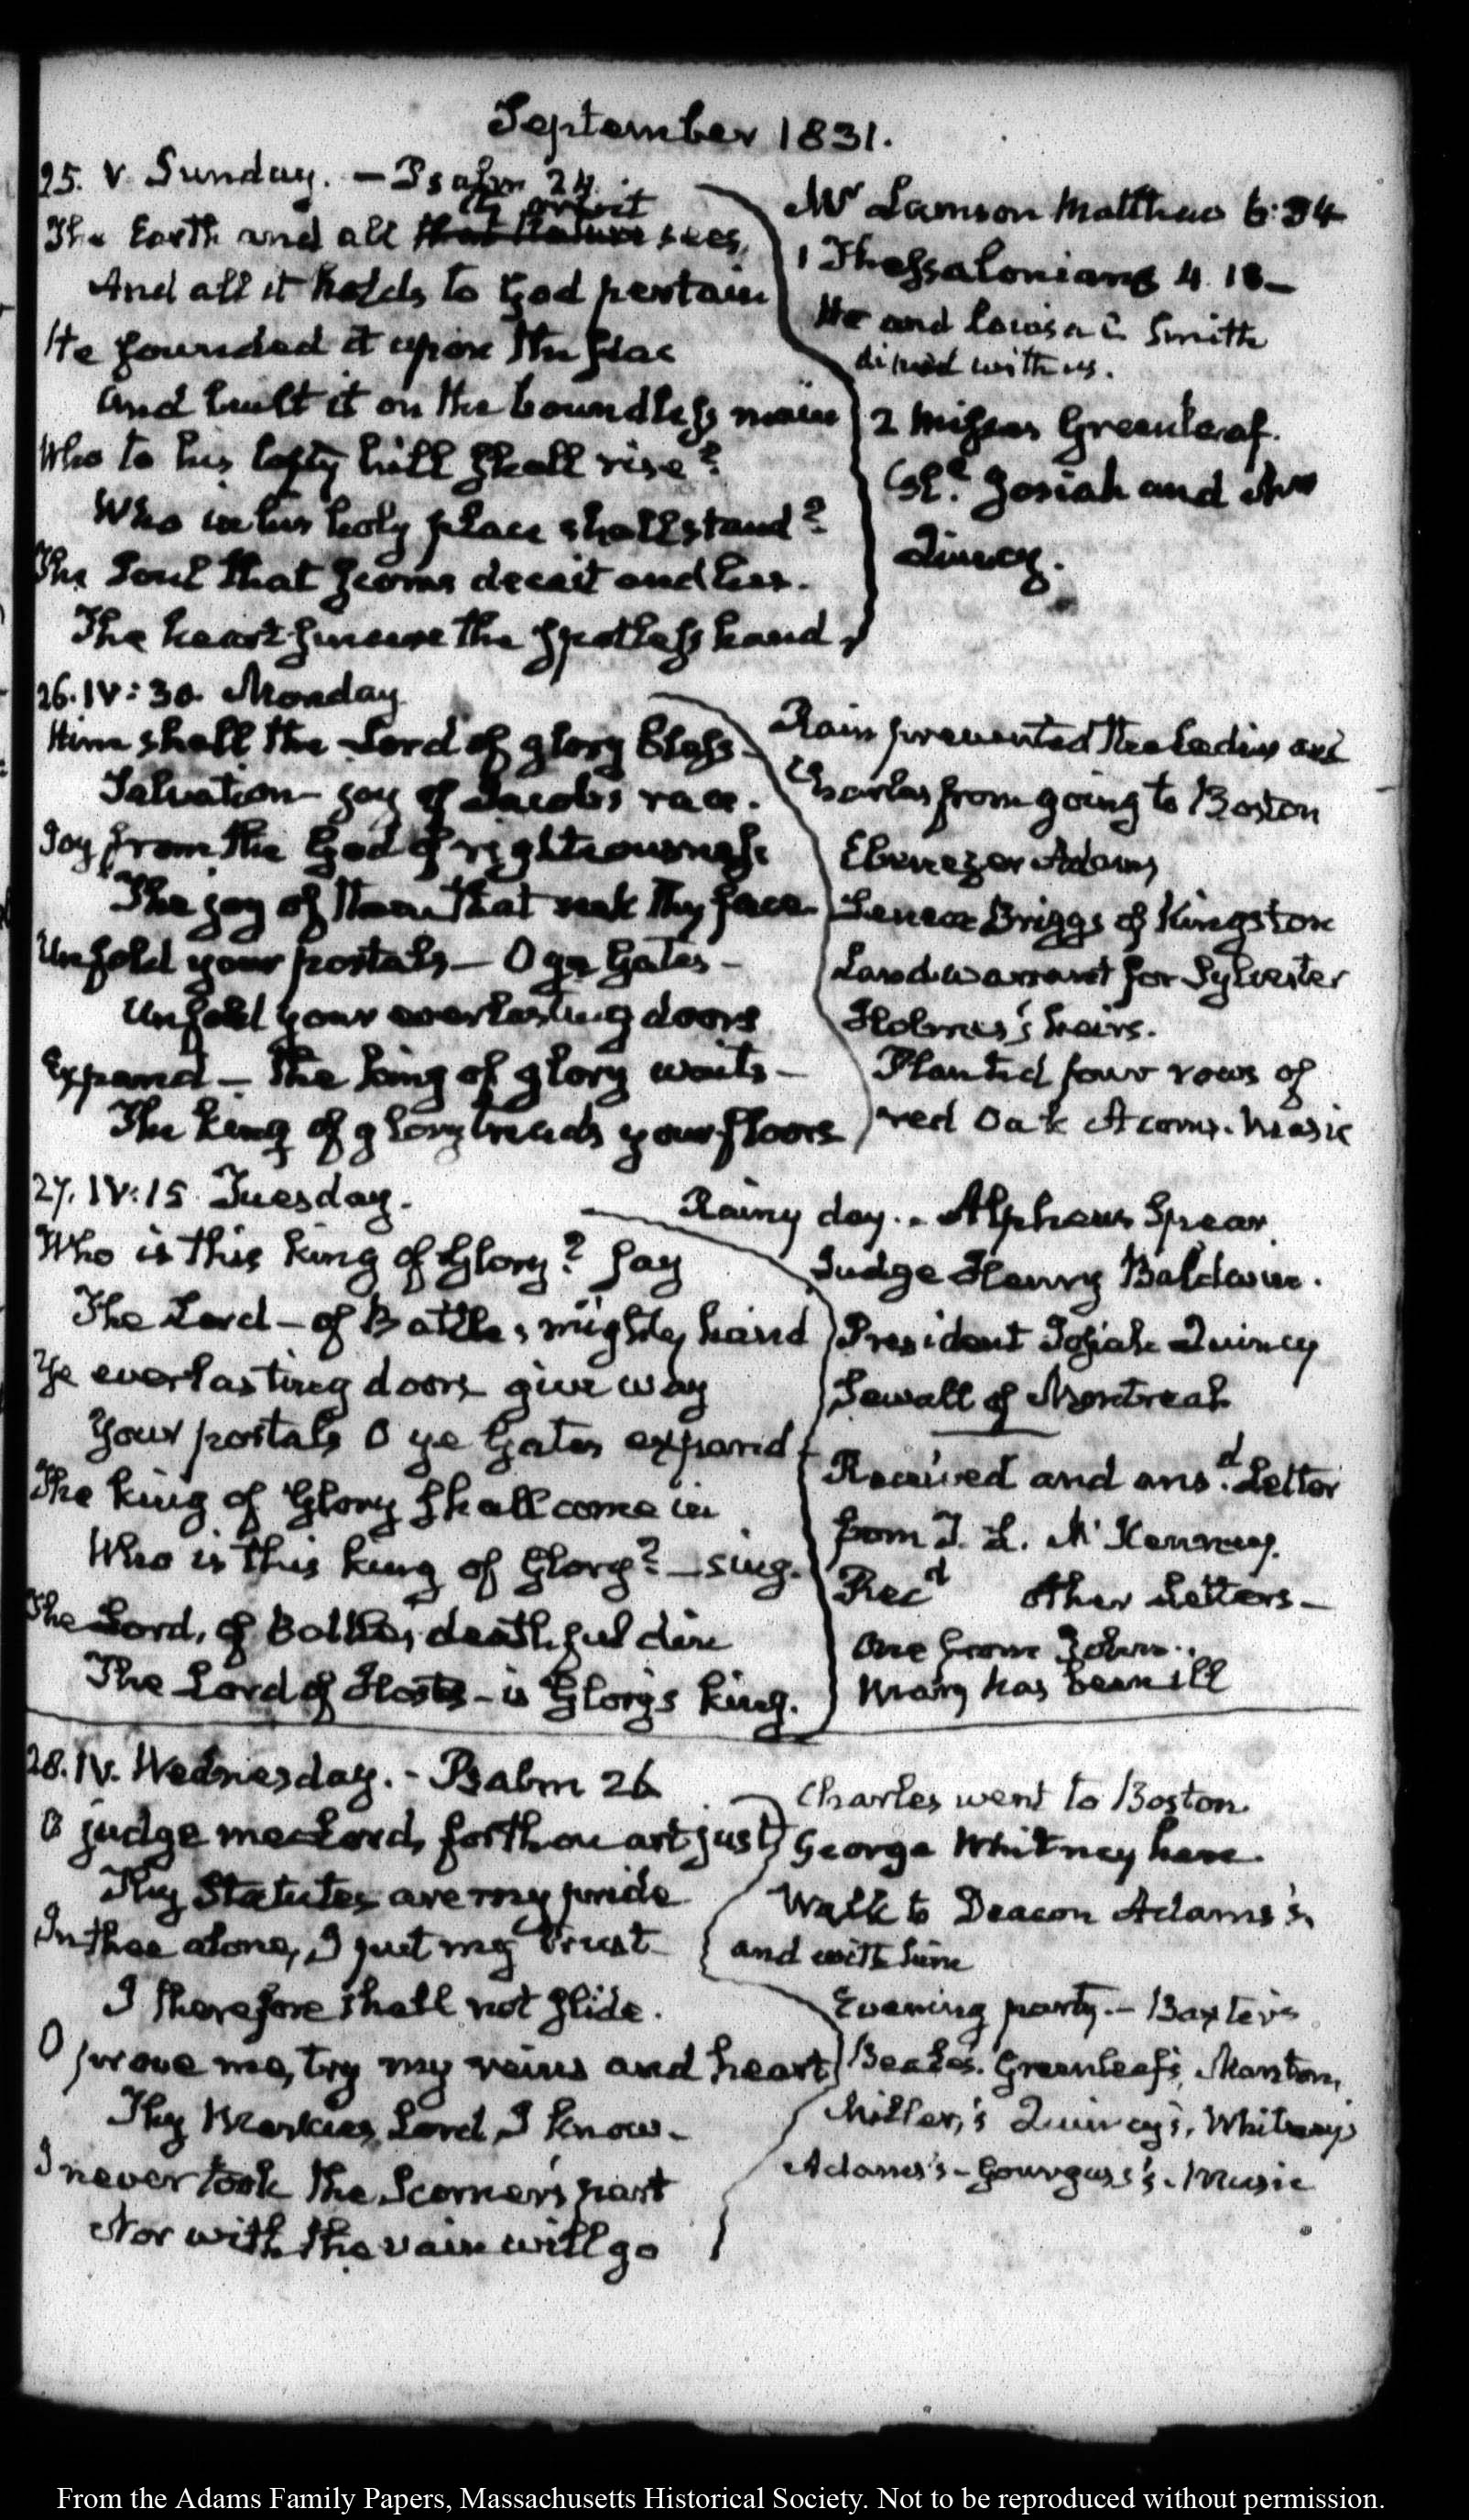 September 1831.
25. V. Sunday. – Psalm 24.
its orbit
The Earth and all that Nature sees,
And all it holds to God pertain
He founded it upon the seas
And built it on the boundless main
Who to his lofty hill shall rise?
Who in his holy place shall stand?
The Soul that scorns deceit and lies.
The heart sincere the spotless hand,
Mr Lamson Matthew 6:34
1 Thessalonians 4. 18 –
He and Louisa C. Smith
dined with us.
2 Misses Greenleaf.
Josiah and Mrs
Quincy.
26. IV: 30. Monday
Him shall the Lord of glory bless –
Salvation – joy of Jacob's race.
Joy from the God of righteousness
The joy of them that seek thy face.
Unfold your portals – O ye Gates –
Unfold your everlasting doors
Expand – The king of glory waits –
The king of glory treads your floors
Rain prevented the Ladies and
Charles from going to Boston
Ebenezer Adams
Seneca Briggs of Kingston
Land warrant for Sylvester
Holmes's heirs.
Planted four rows of
red Oak Acorns. Music
27. IV: 15 Tuesday.
Who is this king of Glory? say
The Lord – of Battles, mighty hand
Ye everlasting doors give way
Your portals O ye Gates expand –
The king of Glory shall come in
Who is this king of Glory? – sing.
The Lord, of Battles, deathful din
The Lord of Hosts – is Glory's king.
Rainy day. – Alpheus Spear.
Judge Henry Baldwin.
President Josiah Quincy
Sewall of Montreal
Received and ansd. Letter
from T. L. McKenney.
Recd other Letters –
One from John..
Mary has been ill
28. IV. Wednesday. – Psalm 26
O judge me Lord, for thou art just
Thy Statutes are my pride
In thee alone, I put my trust
I therefore shall not slide.
O prove me, try my reins and heart
Thy Mercies, Lord, I know –
I never took the Scorner's part
Nor with the vain will go
Charles went to Boston.
George Whitney here.
Walk to Deacon Adams's,
and with him
Evening party. – Baxter's
Beale's. Greenleaf's, Marston,
Miller's Quincy's, Whitney's
Adams's – Gourgas's. Music
From the Adams Family Papers, Massachusetts Historical Society. Not to be reproduced without permission.